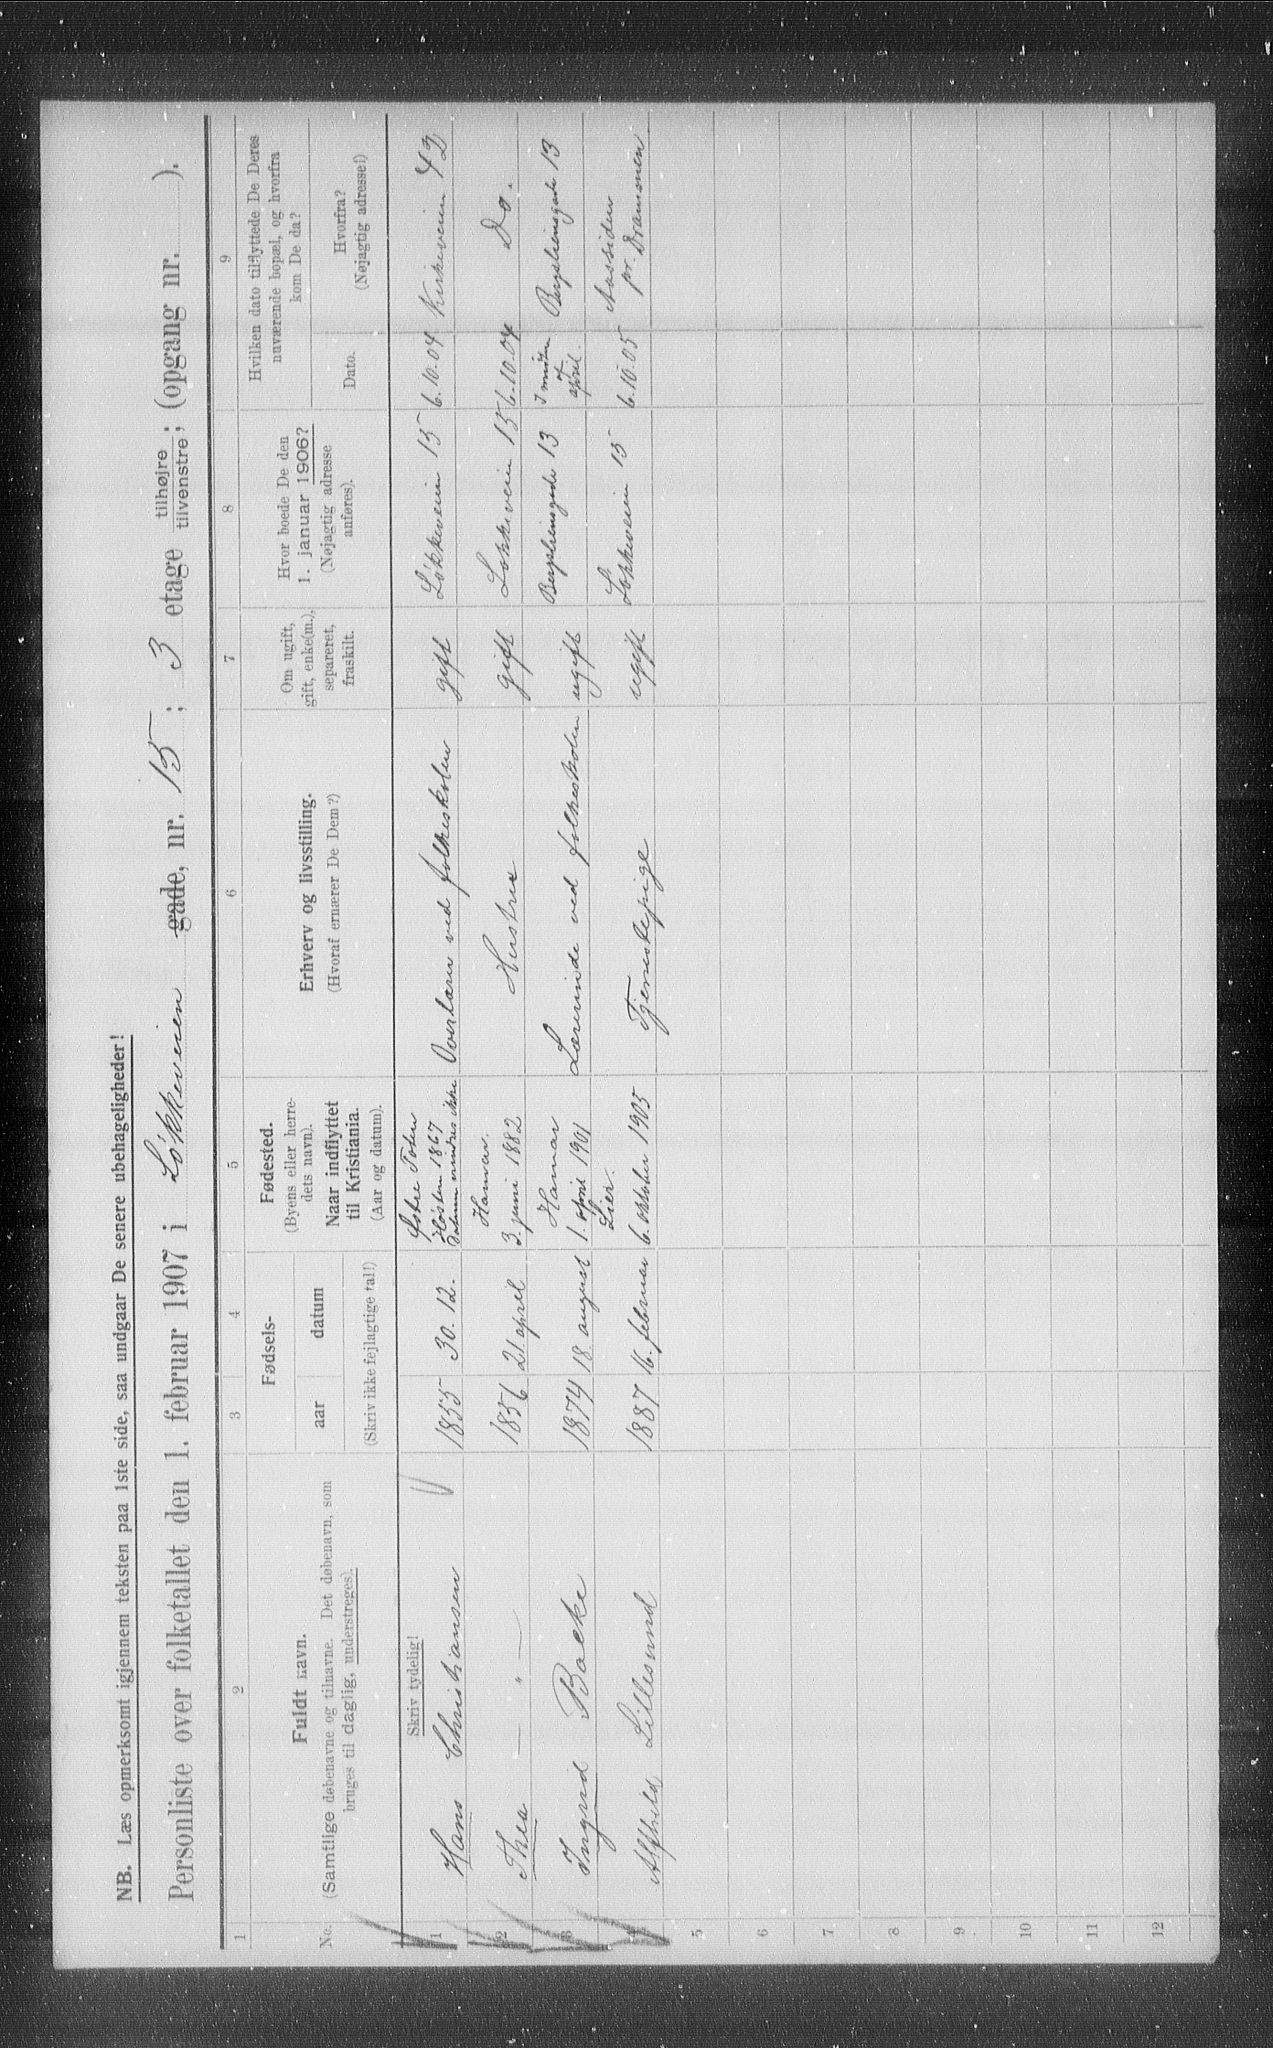 NB. Læs opmerksomt igjennem teksten paa 1ste side, saa undgaar De senere ubehageligheder!
Personliste over folketallet den 1. februar 1907 i Løkkeveien gade, nr. 15; 3 etage tilhøjre tilvenstre; (opgang nr. ).
1 2 3 4 5 6 7 8 9
No.
Fuldt navn.
(Samtlige døbenavne og tilnavne. Det døbenavn, som
bruges til daglig, understreges).
Fødsels-
aar datum
(Skriv ikke fejlagtige tal!)
Fødested.
(Byens eller herre-
dets navn).
Naar indflyttet
til Kristiania.
(Aar og datum).
Erhverv og livsstilling.
(Hvoraf ernærer De Dem?)
Om ugift,
gift, enke(m.),
separeret,
fraskilt.
Hvor boede De den
1. januar 1906?
(Nøjagtig adresse
anføres).
Hvilken dato tilflyttede De Deres
nuværende bopæl, og hvorfra
kom De da?
Dato.
Hvorfra?
(Nøjagtig adresse!)
Skriv tydelig!
1 Hans Christiansen 1855 30. 12. Østre Toten Høsten 1867 Datum mindes ikke Overlærer ved folkeskolen gift Løkkeveien 15 6.10.04 Kirkeveien 42
2 Thea — " — 1856 21 april Hamar. 3. juni 1882 Hustru gift Løkkeveien 15 6.10.04 Do.
3 Ingrid Bakke 1874 18 august Hamar 1. april 1901 Lærerinde ved folkeskolen ugift Bergsliensgade 13 I midten af april. Bergsliensgade 13
4 Alfhild Lillesund 1887 16. februar Lier. 6. oktober 1905 Tjenestepige ugift Løkkeveien 15 6.10.05 Aassiden pr. Drammen
5
6
7
8
9
10
11
12